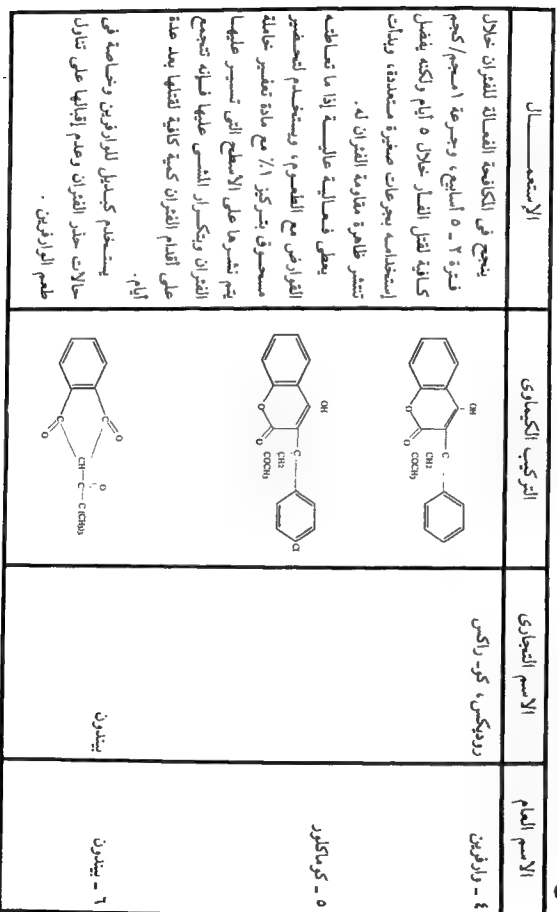 الاسم العام
الاسم التجارى
التركيب الكيماوى
الاستعمـــــــال
٤ - وارفرين
روديكس، كو- راكس
OH
O
O
C
CH2
COCH3
ينجح فى الكافحة الفعالة للفئران خلال
فترة ٢ - ٥ أسابيع، وجرعة ١مجم/كجم
كافية لقتل الفأر خلال ٥ أيام ولكنه يفضل
إستخدامه بجرعات صغيرة متعددة، وبدأت
تنتشر ظاهرة مقاومة الفئران له.
٥ - كوماكلور
OH
O
O
C
CH2
COCH3
Cl
يعطى فعالية عالية إذا ما تعاطته
القوارض مع الطعوم، ويستخدم لتحضير
مسحوق بتركيز ١٪ مع مادة تعفير خاملة
يتم نشرها على الاسطح التى تسير عليها
الفئران وبتكرار المشى عليها فإنه تتجمع
على أقدام الفئران كمية كافية لقتلها بعد عدة
أيام.
٦ - بيندون
بيندون
O
C
CH-C-C(CH3)3
O
C
O
يستخدم كبديل للوارفرين وخاصة فى
حالات حذر الفئران وعدم إقبالها على تناول
طعم الوارفرين .